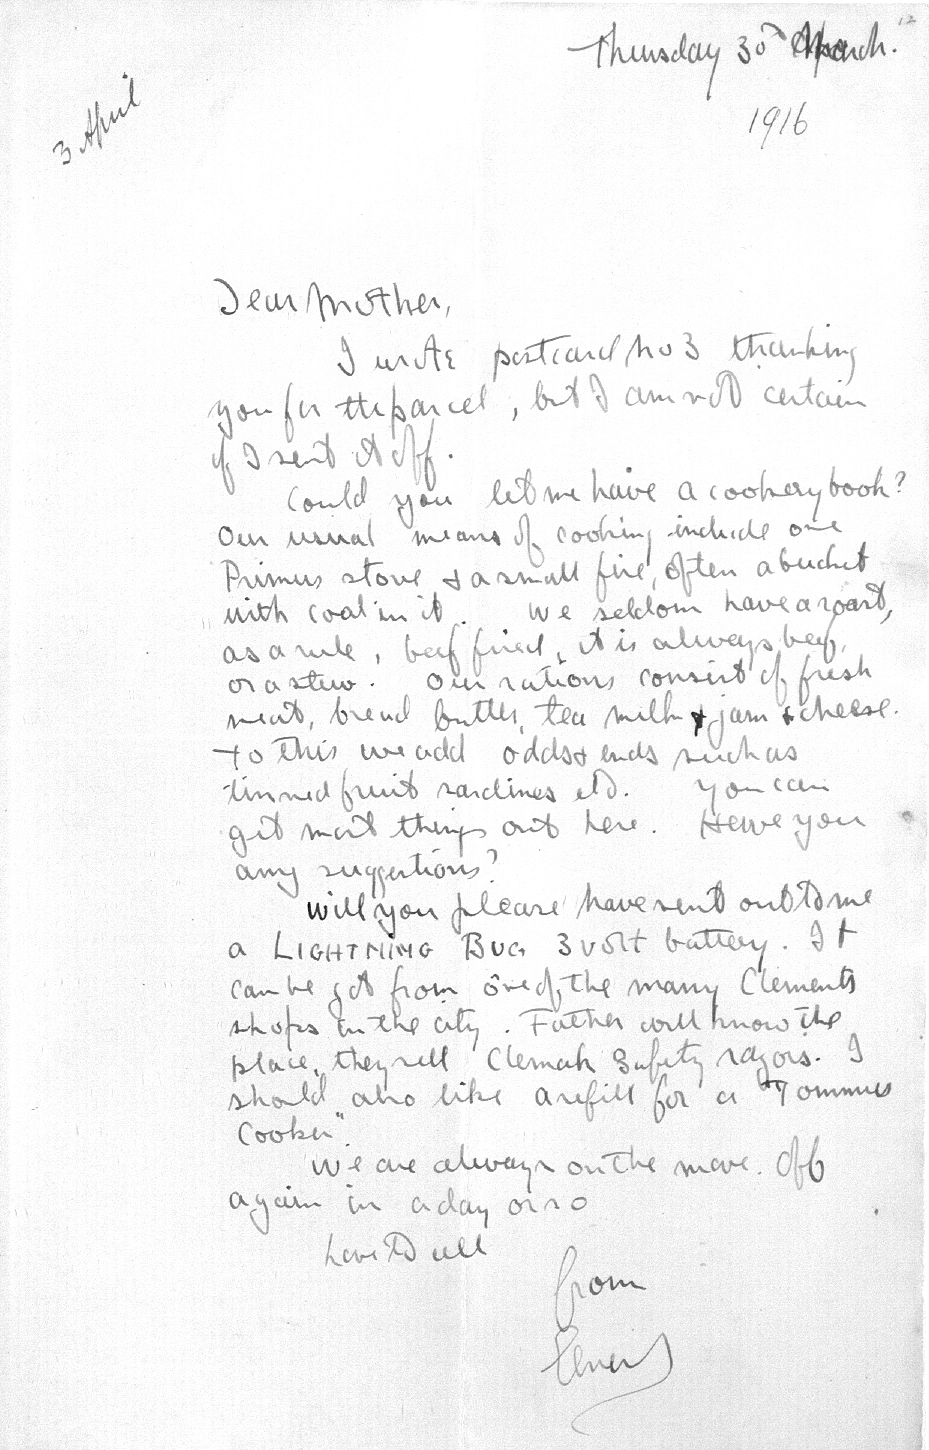 12
Thursday 30th March.
1916
3 April
Dear Mother,
I wrote postcard No 3 thanking
you for the parcel, but I am not certain
if I sent it off.
Could you let me have a cookery book?
Our usual means of cooking include one
Primus stove & a small fire, often a bucket
with coal in it. We seldom have a roast,
as a rule, beef fried, it is always beef,
or a stew. Our rations consist of fresh
meat, bread butter, tea milk & jam & cheese.
To this we add odds & ends such as
tinned fruit sardines etc. You can
get most things out here. Have you
any suggestions?
Will you please have sent out to me
a LIGHTNING BUG 3 volt battery. It
can be got from one of the many Clements
shops in the city. Father will know the
place, they sell Clemak Safety razors. I
should also like a refill for a "Tommies
Cooker".
We are always on the move. Off
again in a day or so
Love to all
from